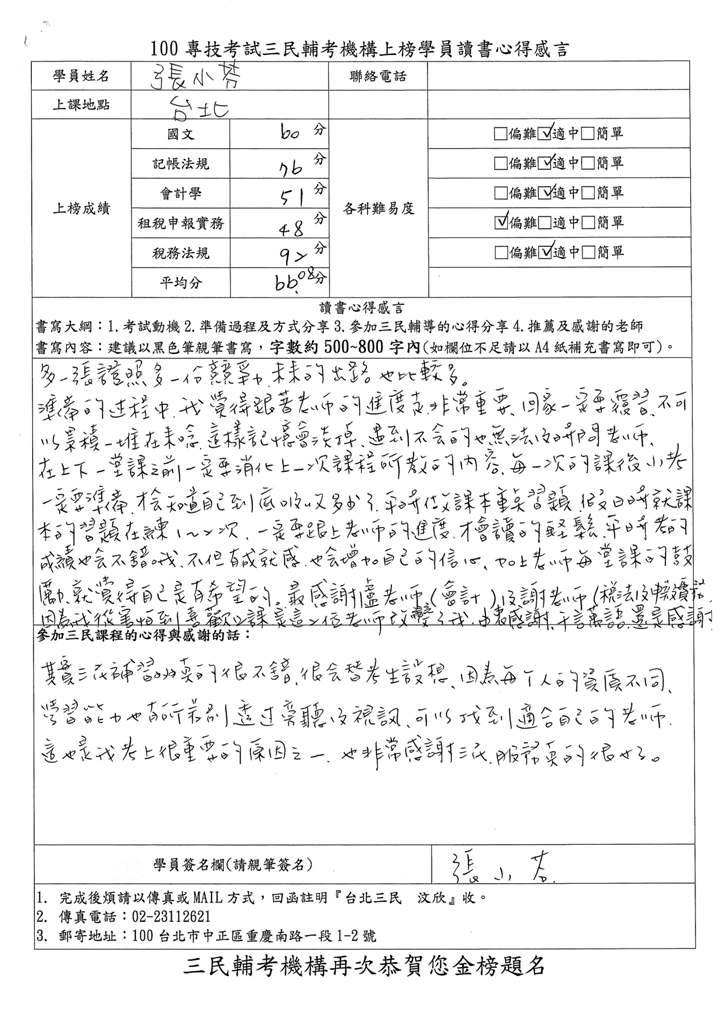 100 專技考試三民輔考機構上榜學員讀書心得感言
學員姓名 張小芬 聯絡電話
上課地點 台北
上榜成績 各科難易度
國文 60 分 □偏難☑適中□簡單
記帳法規 76 分 □偏難☑適中□簡單
會計學 51 分 □偏難☑適中□簡單
租稅申報實務 48 分 ☑偏難□適中□簡單
稅務法規 92 分 □偏難☑適中□簡單
平均分 66.08分
讀書心得感言
書寫大綱：1.考試動機 2.準備過程及方式分享 3.參加三民輔導的心得分享 4.推薦及感謝的老師
書寫內容：建議以黑色筆親筆書寫，字數約 500~800 字內(如欄位不足請以 A4 紙補充書寫即可)。
多一張證照多一份競爭力,未來的出路也比較多。
準備的过程中,我覺得跟著老师的進度走非常重要、回家一定要覆習,不可
以累積一堆在來唸,這樣記憶會淡掉,遇到不会的也無法及時問老师.
在上下一堂課之前一定要消化上一次課程所教的內容,每一次的課後小考
一定要準備,才会知道自己到底吸收多少了.平時做課本重点習題,假日時就課
本的習題在練1~2次.一定要跟上老师的進度,才會讀的輕鬆,平時考的
成績也会不錯哦,不但有成就感,也会增加自己的信心,加上老师每堂課的鼓
勵,就覺得自己是有希望的,最感謝盧老师(會計)及謝老师(稅法及申報實務)
因為我從害怕到喜歡上課是這二位老师改變了我,由衷感謝,千言萬語,還是感謝
參加三民課程的心得與感謝的話：
其實三民補習班真的很不錯,很会替考生設想,因為每个人的資質不同,
學習能力也有所差別,透过旁聽及視訊,可以找到適合自己的老师.
這也是我考上很重要的原因之一,也非常感謝三民,服務真的很好。
學員簽名欄(請親筆簽名) 張小芬
1. 完成後煩請以傳真或 MAIL 方式，回函註明『台北三民 汶欣』收。
2. 傳真電話：02-23112621
3. 郵寄地址：100 台北市中正區重慶南路一段 1-2 號
三民輔考機構再次恭賀您金榜題名